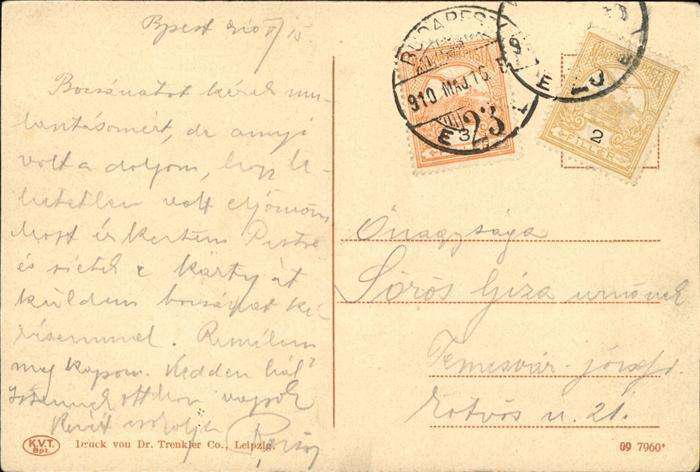 Bpest 910 V/15
Bocsánatot kérek mu-
lasztásomért, de annyi
volt a dolgom, hogy le-
hetetlen volt eljönnöm
most érkeztem Pestre
és sietek e kártyát
küldeni bocsánat ké-
résemmel. Remélem
meg kapom. Kedden hál'
Istennek otthon vagyok
Kezét csókolja
BUDAPEST
910 MÁJ. 16
E 3
23
2
FILLÉR
Őnagysága
Sörös Géza urnőnek
Temesvár-józsf.
Eötvös u. 21.
K.V.T.
Bpt
Druck von Dr. Trenkler Co., Leipzig.
09 7960*